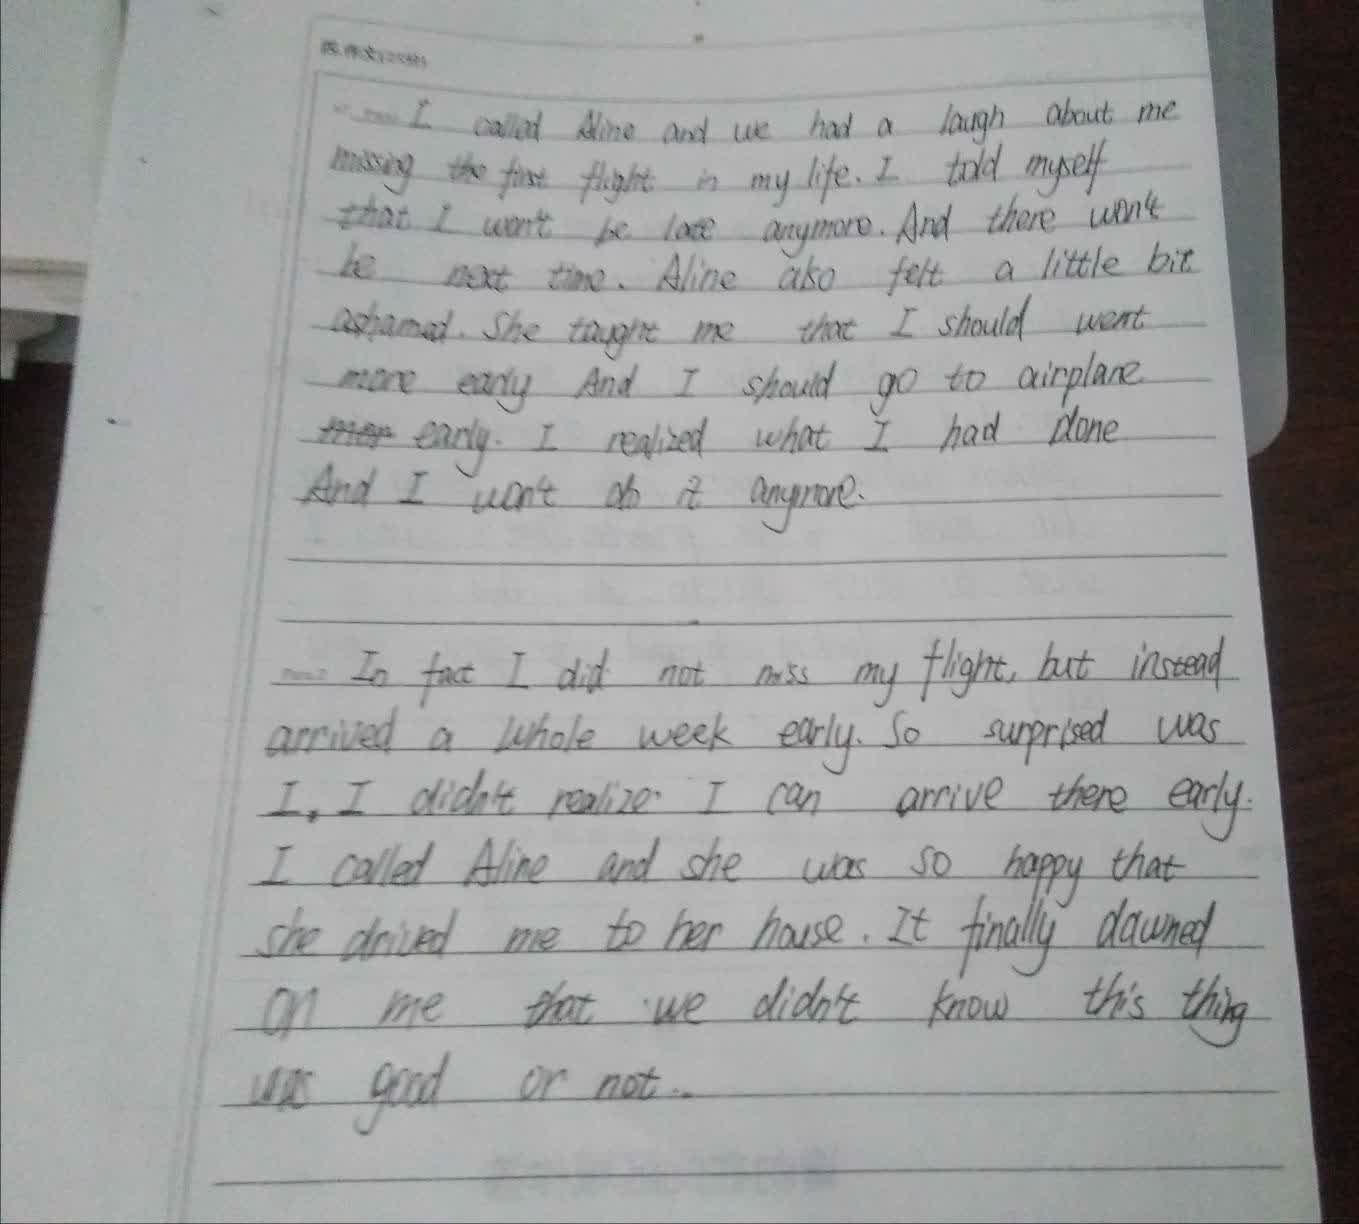 四.作文(25分)
I called Aline and we had a laugh about me
missing the first flight in my life. I told myself
that I won't be late anymore. And there won't
be next time. Aline also felt a little bit
ashamed. She taught me that I should went
more early And I should go to airplane
early. I realized what I had done
And I won't do it anymore.
In fact I did not miss my flight, but instead
arrived a whole week early. So surprised was
I, I didn't realize I can arrive there early.
I called Aline and she was so happy that
she drived me to her house. It finally dawned
on me that we didn't know this thing
was good or not..